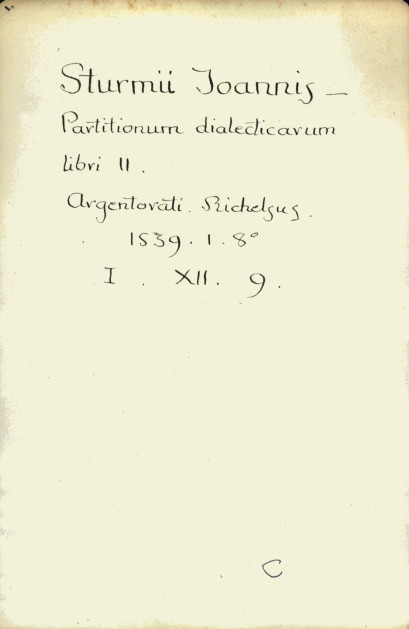 Sturmii Joannis —
Partitionum dialecticarum
libri II .
Argentorati . Richelsus .
1539 . 1 . 8°
I . XII . 9 .
C